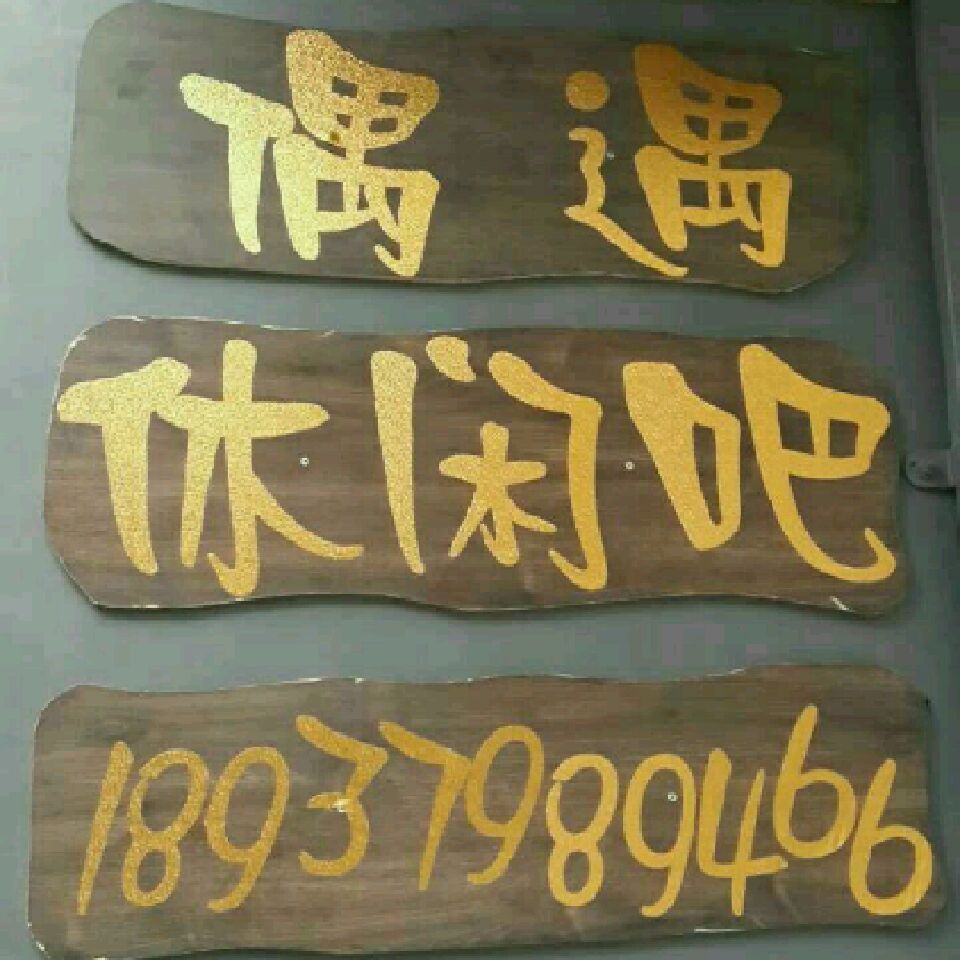 偶遇
休闲吧
18937989466